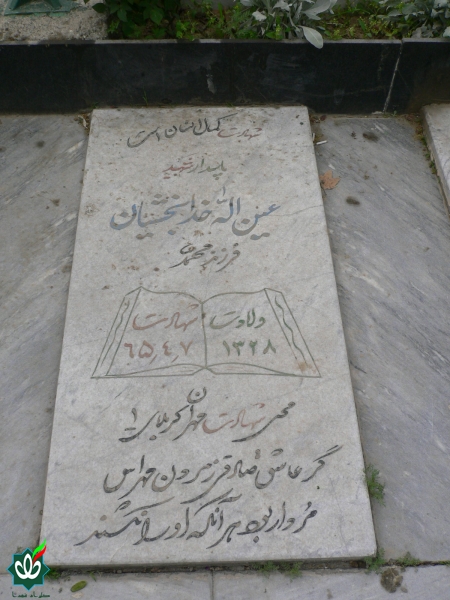 شهادت کمال انسان است
پاسدار شهید
عین اله خدابخشیان
فرزند محمد
ولادت
۱۳۲۸
شهادت
۶۵،۴،۷
محل شهادت مهران کربلای ۱
گر عاشق صادقی ز مردن مهراس
مردار بود هر آنکه او را نکشند